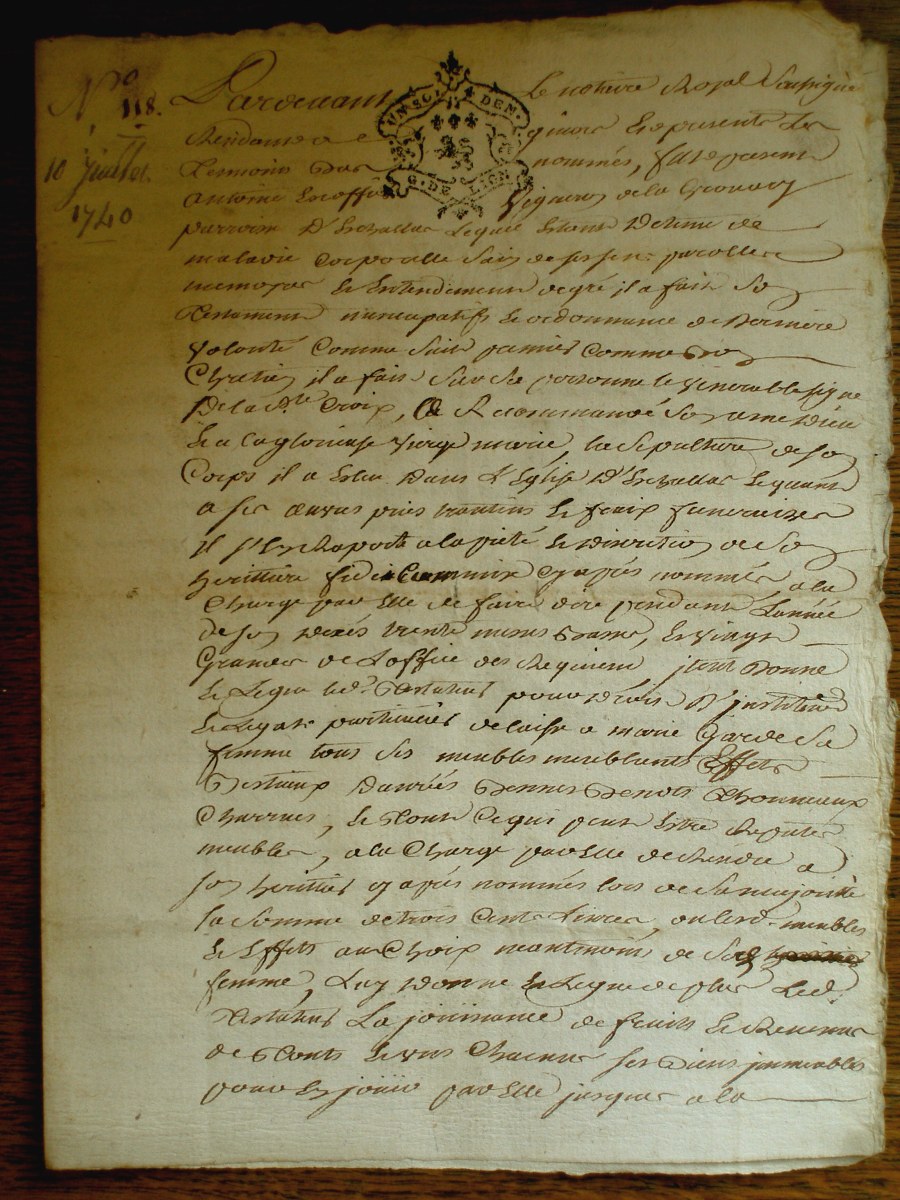 N° 118.
10 Juillet
1740
UN SOL DEN
G. DE LION
Pardevant Le notaire Royal Soussigné
Rendant a et presents Les
temoins bas nommés, fut present
antoine Escoffié Vigneron de la
parroisse D'Eschallas Lequel Estant Detenu de
maladie Corporelle Sain de ses sens parolle
memoyre Et Entendement de gré il a fait So
Testament nuncupatifs Et ordonnance de Derniere
volonté Comme Suit premiere Comme bon
Chretien il a fait Sur Sa personne le venerable signe
De la Ste Croix, & Recommandé So ame a Dieu
Et a la glorieuse vierge marie, la Sepulture de So
Corps il a Esleu Dans L'Eglise D'Eschallas Lequant
a ses œuvres pies Et fraix funeraires
il s'En Raporte a la pieté Et Discretion de Sa
heritiere fideicommix Cy apres nommée a la
Charge par Elle de faire dire pendant L'année
de So decés trente messes basses, Et vingt
Grandes de L'office des Requiem Donne
Et Legue led. Testateur pour Droit D'institution
Et Legat particulier delaisse a marie Garde Sa
femme tous Ses meubles meublants Effets
Bestiaux Danrées
Charrues, Et tout Ce qui peut Estre Reputés
meubles, a la Charge par Elle de Rendre a
So heritier cy apres nommés lors de Sa majorité
la Somme de trois Cents Livres, ou lesd. meubles
Et Effets au Choix de Sad.
femme, Luy Donne Et Legue de plus Led.
Testateur La joüissance de fruits Et Revenus
de touts Et uns Chacuns ses Biens immeubles
pour En joüir par Elle jusques a la